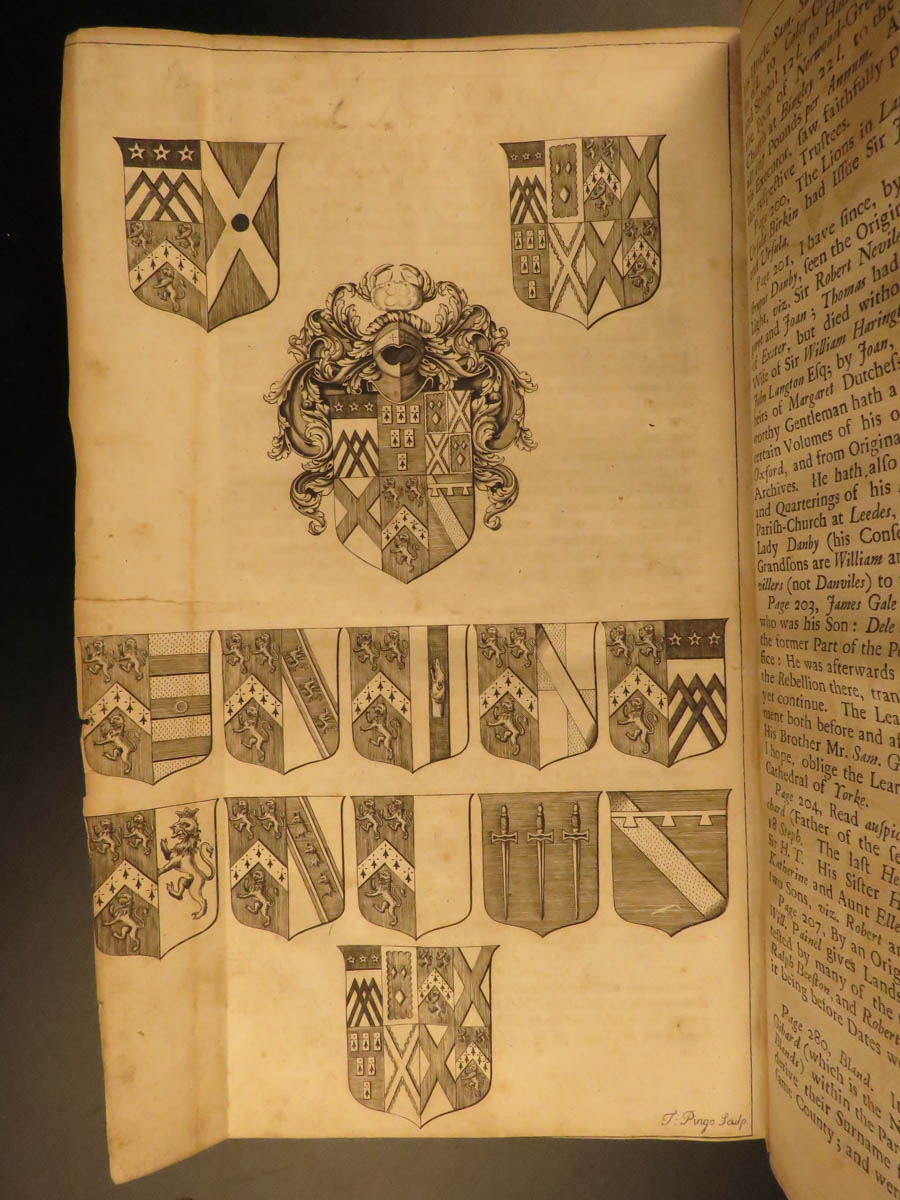 T: Pingo Sculp.
Sam.
to Coley
and School 12 l. to
the Poor of Normond-Green
Church at Bingley 22 l. to the
Pounds per Annum.
Executor, saw faithfully
respective Trustees.
Page 200, The Lions in
Ursula Birkin had Issue Sir
and Ursula.
Page 201, I have since, by
Danby, seen the Origin
viz. Sir Robert Nevile
and Joan; Thomas had
of Exeter, but died witho
Wife of Sir William Haring
John Langton Esq; by Joan,
heirs of Margaret Dutchess
worthy Gentleman hath a
certain Volumes of his o
Oxford, and from Origina
Archives. He hath also
and Quarterings of his
Parish-Church at Leedes,
Lady Danby (his Conso
Grandsons are William an
villers (not Danviles) to
Page 203, James Gale
who was his Son: Dele
the former Part of the
fice: He was afterwards
the Rebellion there, tran
yet continue. The Lea
ment both before and af
His Brother Mr. Sam. G
I hope, oblige the Lear
Cathedral of Yorke.
Page 204, Read auspic
chard (Father of the
18 Steph. The last He
Sir H. T. His Sister H
Katherine and Aunt Elle
two Sons, viz. Robert an
Page 207, By an Orig
Will. Painel gives Lands
tested by many of the
Ralph Beeston, and Robert
it being before Dates we
Page 280, Bland. It
Gisbard (which is the N
Blands) within the Par
derive their Surname
same County; and wer